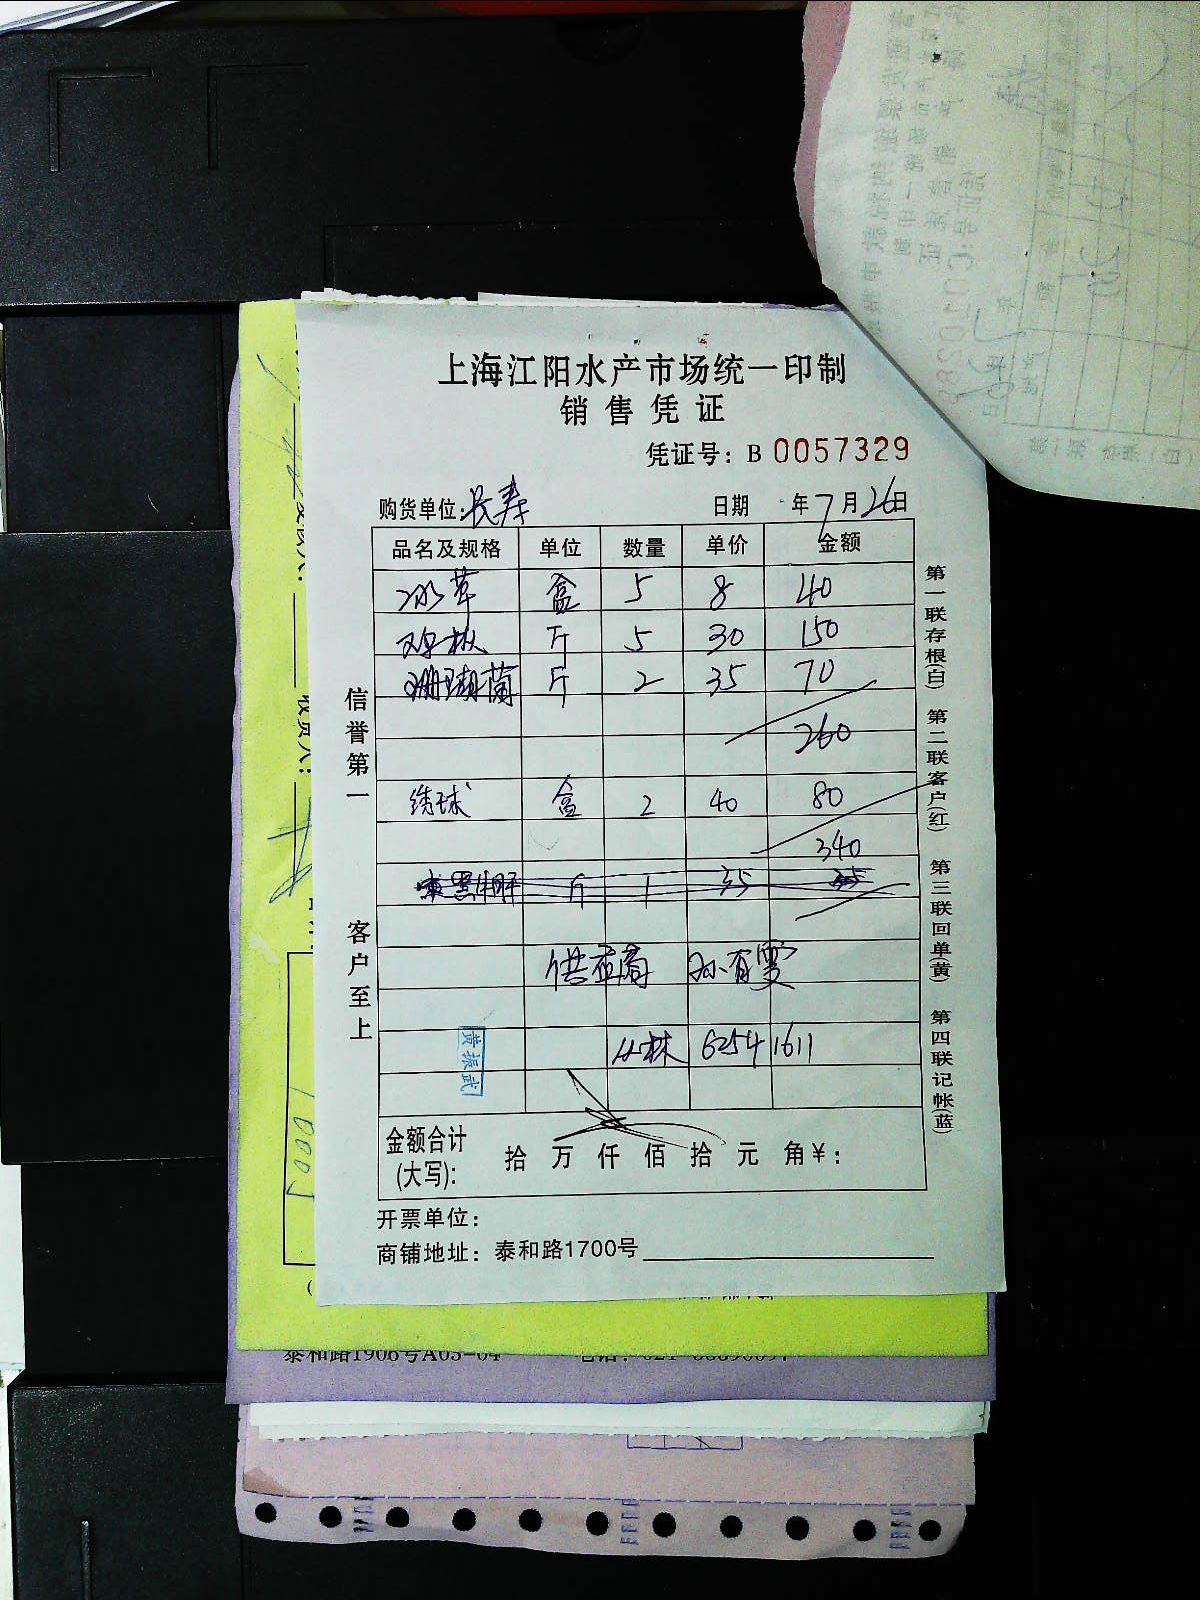 上海江阳水产市场统一印制
销售凭证
凭证号：B 0057329
购货单位：长寿 日期 年7月26日
品名及规格 单位 数量 单价 金额
冰草 盒 5 8 40
鸡枞 斤 5 30 150
珊瑚菌 斤 2 35 70
260
绣球 盒 2 40 80
340
黑牛肝 斤 1 35 35
供应商 孙有雯
丛林 62541611
黄振武
金额合计
(大写)： 拾 万 仟 佰 拾 元 角 ¥：
开票单位：
商铺地址：泰和路1700号
信誉第一
客户至上
第一联存根(白) 第二联客户(红) 第三联回单(黄) 第四联记帐(蓝)
收货人：
泰和路1908号A03-04